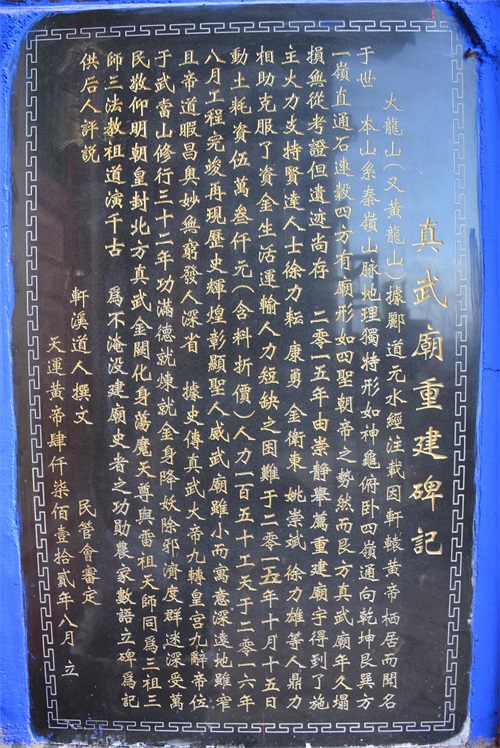 真武廟重建碑記
大龍山(又黃龍山)據酈道元水經注載因軒轅黃帝栖居而聞名
于世 本山系秦嶺山脉地理獨特形如神龜俯卧四嶺通向乾坤艮巽方
一嶺直通石連穀四方有廟形如四聖朝帝之勢然而艮方真武廟年久塌
損無從考證但遺迹尚存 二零一五年由崇靜舉薦重建廟宇得到了施
主大力支持賢達人士徐力耘 康勇 金衛東 姚崇斌 徐力雄等人鼎力
相助克服了資金生活運輸人力短缺之困難于二零一五年十月十五日
動土耗資伍萬叁仟元(含料折價)人力一百五十工天于二零一六年
八月工程完竣再現歷史輝煌彰顯聖人威武廟雖小而寓意深遠地雖窄
且帝道暇昌奥妙無窮發人深省 據史傳真武大帝九轉皇宫九辭帝位
于武當山修行三十二年功滿德就煉就金身降妖除邪濟度群迷深妥萬
民敬仰明朝皇封北方真武金闕化身蕩魔天尊與雷祖天師同為三祖三
師三法教祖道演千古 爲不淹没建廟史者之功勛農家數語立碑爲記
供后人評説
軒溪道人撰文 民管會審定
天運黃帝肆仟柒佰壹拾貳年八月 立